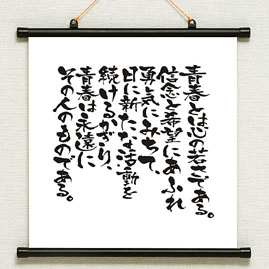 青春とは心の若さである。
信念と希望にあふれ
勇気にみちて、
日に新たな活動を
続けるかぎり、
青春は永遠に
その人のものである。